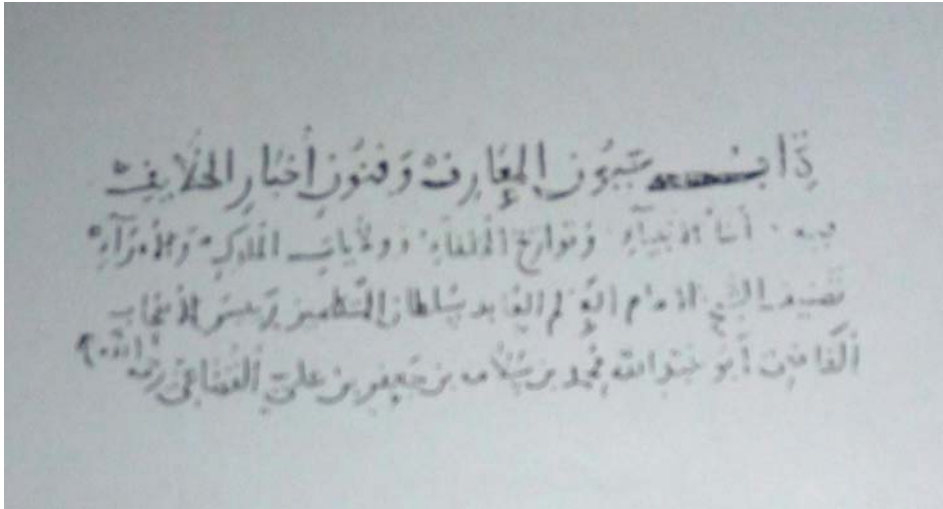 كتاب عيون المعارف وفنون أخبار الخلائف
فيه أنباء الأنبياء وتواريخ الخلفاء وولايات الملوك والأمراء
تصنيف الشيخ الإمام العالم العابد سلطان المتكلمين رئيس الأصحاب
القاضي أبو عبدالله محمد بن سلامة بن جعفر بن علي القضاعي رحمه الله